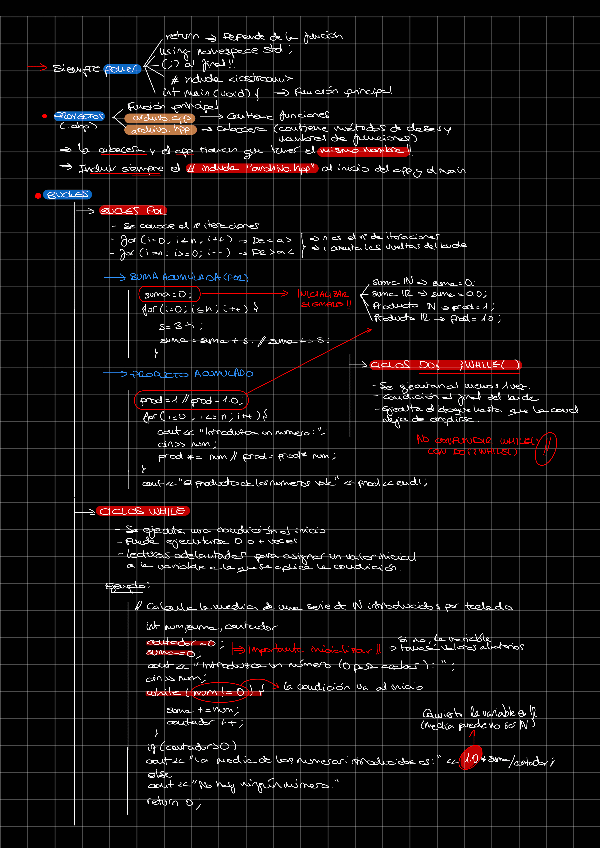 return → Depende de la función
using namespace std ;
→ Siempre poner
(;) al final!!
# include <iostream>
int main (void) { → Función principal
Función principal
• PROYECTOS
(.cbp)
archivo.cpp → Contiene funciones
archivo.hpp → cabecera (contiene métodos de clases y
nombres de funciones)
→ La cabecera y el cpp tienen que tener el mismo nombre!
→ Incluir siempre el # include "archivo.hpp" al inicio del cpp y el main
• BUCLES
→ BUCLES FOR
- Se conoce el nº iteraciones
- for (i=0, i<n, i++) → De < a > → n es el nº de iteraciones
- for (i=n, i>0; i--) → De > a < → i cuenta las vueltas del bucle
→ SUMA ACUMULADA (FOR)
suma=0; → INICIALIZAR
SIEMPRE!!
for (i=0; i≤n; i++) {
suma IN → suma=0;
suma IR → suma=0.0;
Producto IN → prod=1;
Producto IR → prod=1.0;
suma = suma + s; // suma += s;
→ PRODUCTO ACUMULADO
prod=1 // prod=1.0;
for (i=0, i<=n; i++) {
cout << "Introduzca un numero:";
cin>> num;
prod *= num // prod = prod* num;
}
cout << "El producto de los numeros vale" << prod << endl;
→ CICLOS DO{ }WHILE( )
- Se ejecutan al menos 1 vez.
- Condición al final del bucle
- Ejecuta el bloque hasta que la cond
deja de cumplirse.
NO CONFUNDIR WHILE( )
CON DO{ }WHILE( )
→ CICLOS WHILE
- Se ejecuta una condición al inicio
- Puede ejecutarse 0 o + veces
- Lecturas adelantadas para asignar un valor inicial
a la variable a la que se aplica la condición.
Ejemplo:
// Calcula la media de una serie de IN introducidos por teclado
int num, suma, contador
contador=0;
suma=0; → Importante inicializar!!
Si no, la variable
tomase valores aleatorios
cout << "Introduzca un número (0 para acabar): ";
cin>> num;
while (num!=0) { la condición va al inicio
suma += num;
contador ++;
}
Convierto la variable en IR
(Media puede no ser IN)
if (contador>0)
cout << "La media de los numeros introducidos es:" << 1.0 * suma/contador;
else
cout << "No hay ningún número."
return 0;